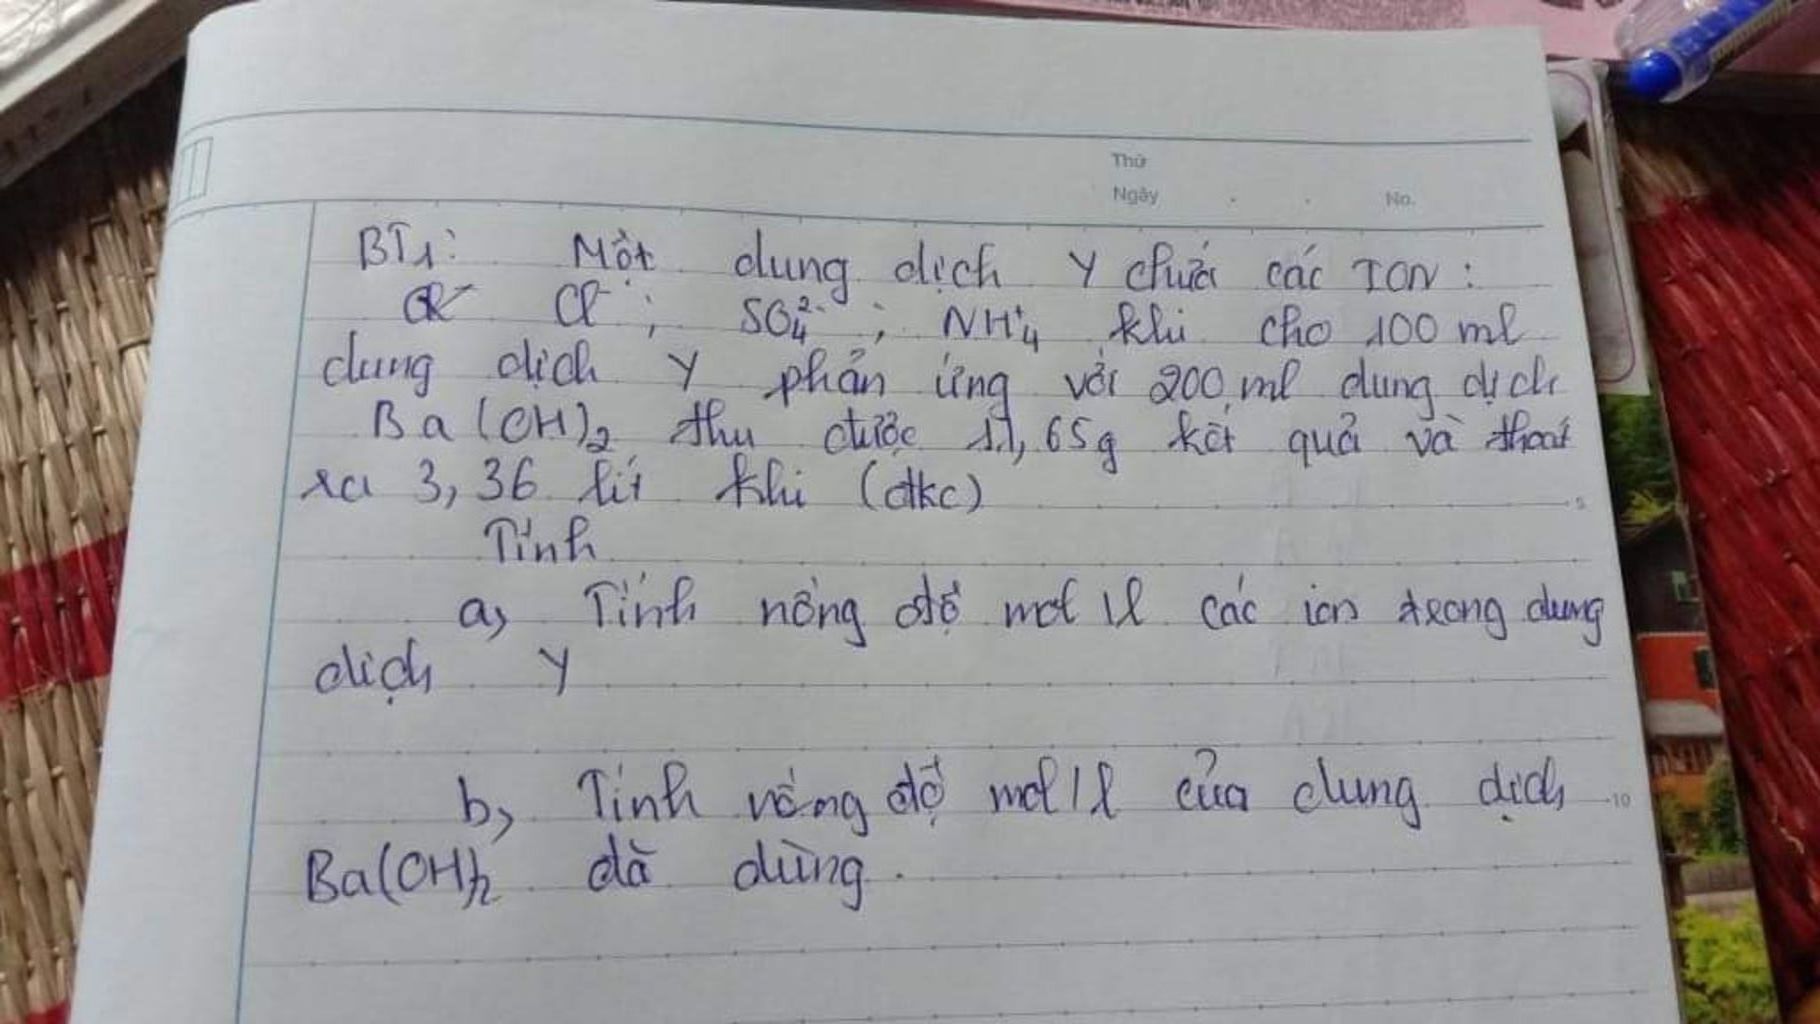 Thứ
Ngày No.
BT1: Một dung dịch Y chứa các ION:
Cl⁻; SO₄²⁻; NH₄⁺ khi cho 100 ml
dung dịch Y phản ứng với 200 ml dung dịch
Ba(OH)₂ thu được 11,65g kết quả và thoát
ra 3,36 lít khi (đkc)
Tính
a, Tính nồng độ mol/l các ion trong dung
dịch Y
5
b, Tính nồng độ mol/l của dung dịch
10
Ba(OH)₂ đã dùng.